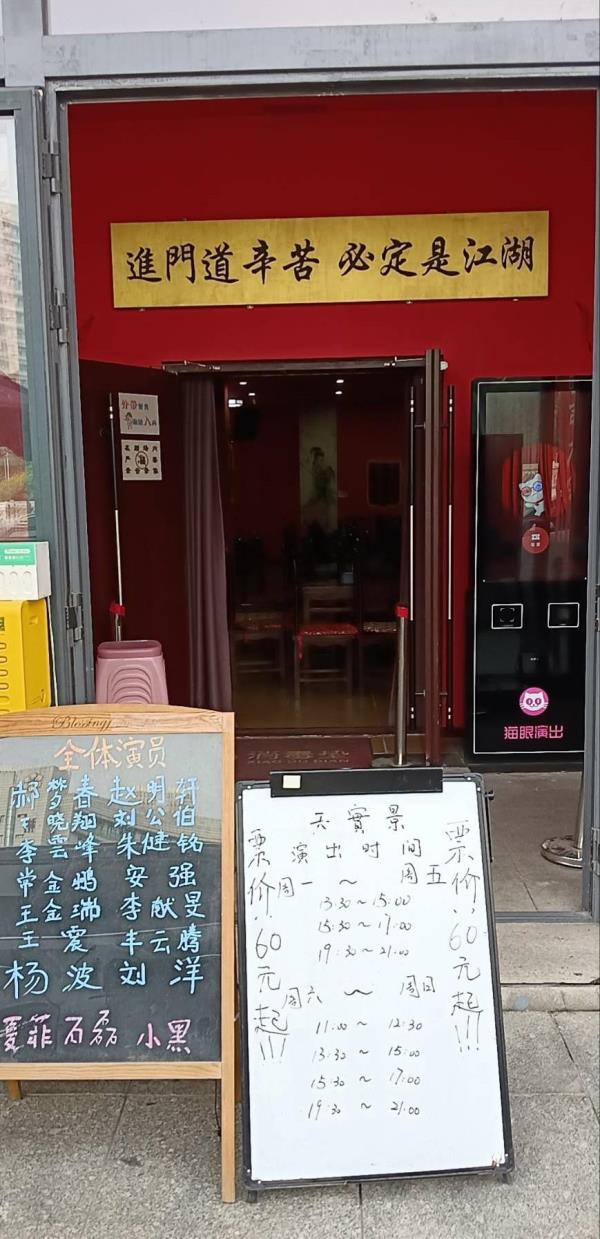 進門道辛苦 必定是江湖
猫眼演出
Blessing
全体演员
郝梦春 赵明轩
王晓翔 刘公伯
李雲峰 朱健铭
常金鹏 安强
王金瑞 李献旻
王震 丰云腾
杨波 刘洋
石磊 小黑
實景
演出时间
周一 ~ 周五
13:30 ~ 15:00
15:30 ~ 17:00
19:30 ~ 21:00
周六 ~ 周日
11:00 ~ 12:30
13:30 ~ 15:00
15:30 ~ 17:00
19:30 ~ 21:00
票价:60元起!!!
票价:60元起!!!